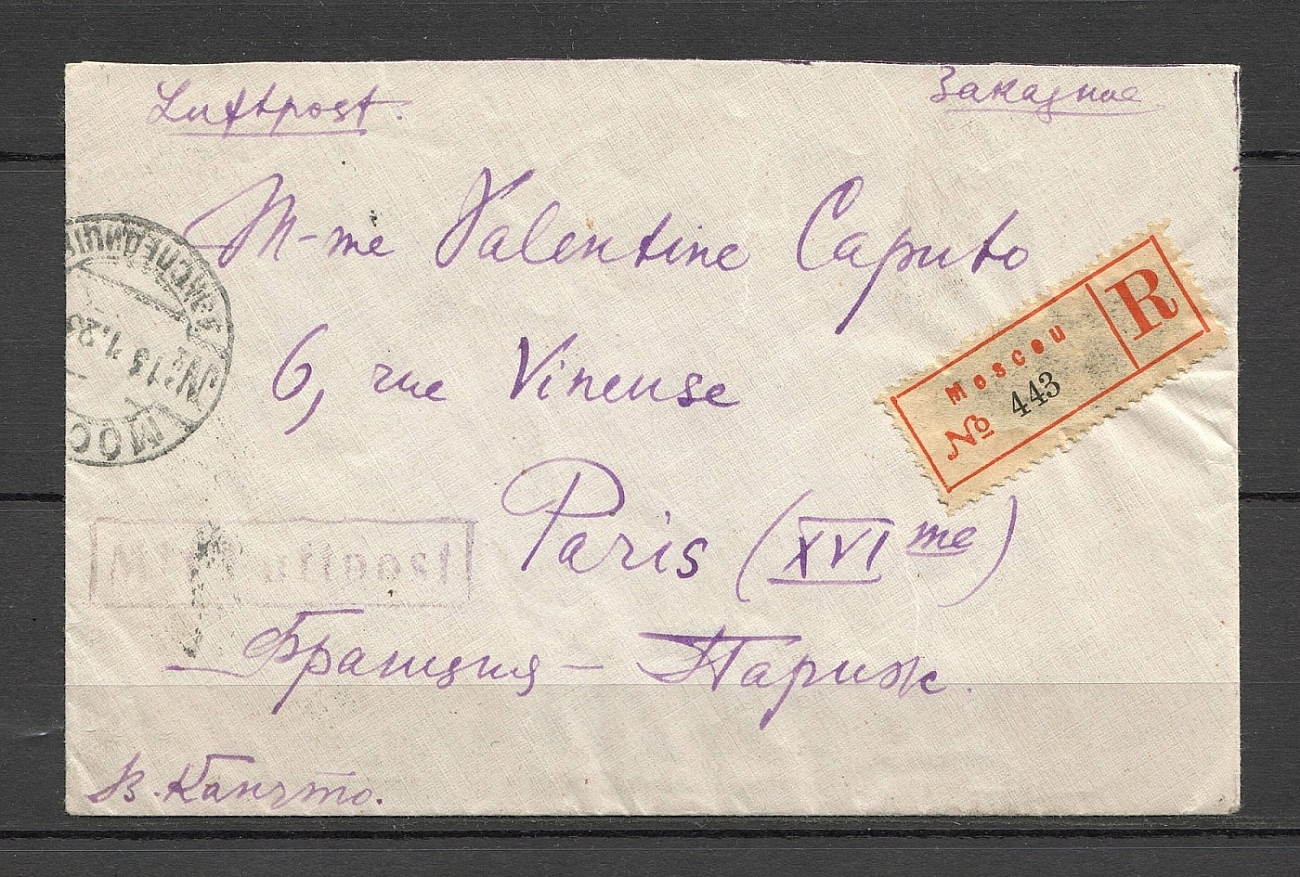 Luftpost.
Заказное
M-me Valentine Caputo
6, rue Vineuse
Paris (XVI me)
Франция — Париж.
В. Капуто.
Moscou
№ 443
R
Mit Luftpost
МОС
ЭКСПЕДИЦ